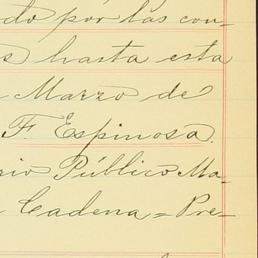 do por las con-
s hasta esta
Marzo de
F. Espinosa.
rio Público Ma-
Cadena = Pre-